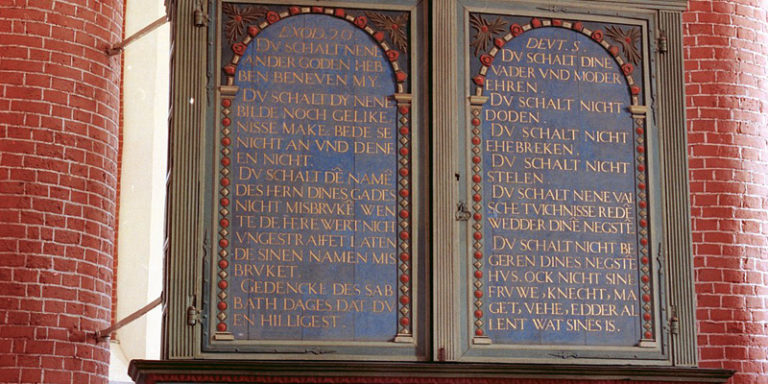 EXOD. 20.
DV SCHALT NENE
ANDER GODEN HEB
BEN BENEVEN MY.
DV SCHALT DY NENE
BILDE NOCH GELIKE
NISSE MAKE. BEDE SE
NICHT AN VND DENE
EN NICHT.
DV SCHALT DĒ NAMĒ
DES HERN DINES GADES
NICHT MISBRVKĒ WEN
TE DE HERE WERT NICH
VNGESTRAFFET LATEN
DE SINEN NAMEN MIS
BRVKET.
GEDENCKE DES SAB
BATH DAGES DAT DV
EN HILLIGEST.
DEVT. 5.
DV SCHALT DINĒ
VADER VND MODER
EHREN.
DV SCHALT NICHT
DODEN.
DV SCHALT NICHT
EHEBREKEN.
DV SCHALT NICHT
STELEN
DV SCHALT NENE VAL
SCHE TVICHNISSE REDĒ
WEDDER DINĒ NEGSTĒ
DV SCHALT NICHT BE
GEREN DINES NEGSTĒ
HVS. OCK NICHT SINE
FRVWE, KNECHT, MA
GET, VEHE, EDDER AL
LENT WAT SINES IS.